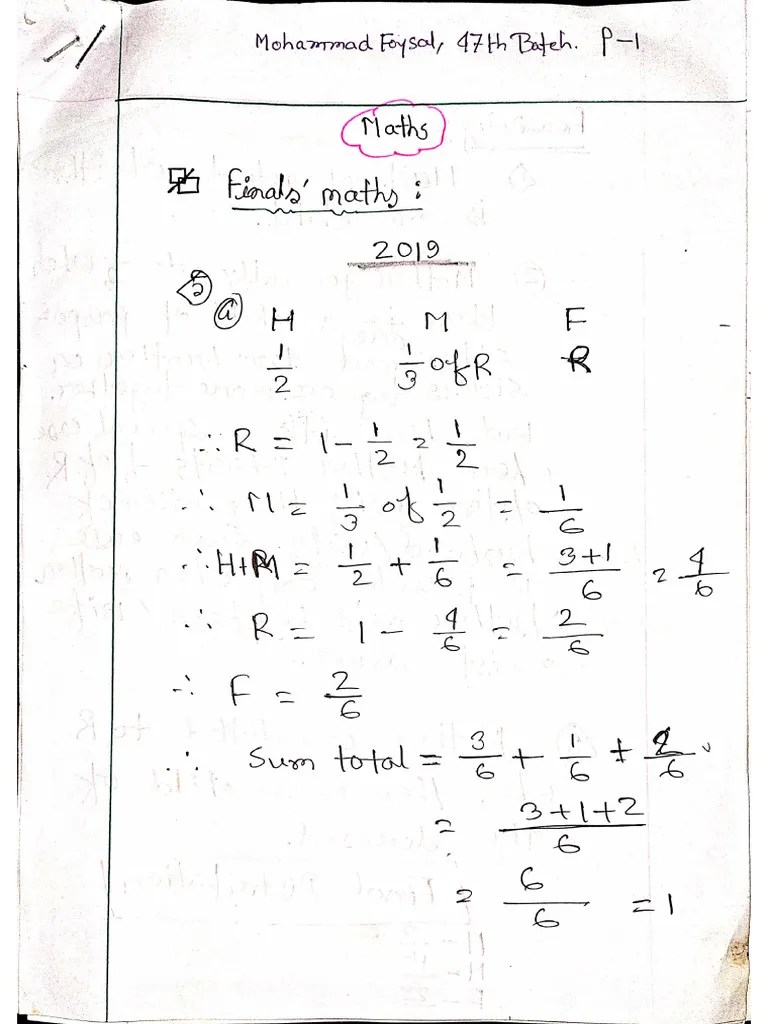 Mohammad Foysal, 47th Batch. P-1
Maths
Finals' maths:
2019
5
a H M F
1/2 1/3 of R R
∴ R = 1 - 1/2 = 1/2
∴ M = 1/3 of 1/2 = 1/6
∴ H+M = 1/2 + 1/6 = 3+1/6 = 4/6
∴ R = 1 - 4/6 = 2/6
∴ F = 2/6
∴ Sum total = 3/6 + 1/6 + 2/6
= 3+1+2/6
= 6/6 = 1